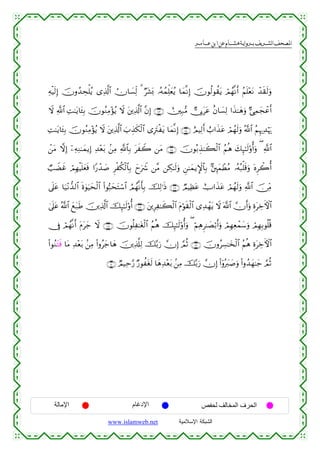 المصحف الشريف برواية هشام عن ابن عامر
وَلَقَدْ نَعْلَمُ أَنَّهُمْ يَقُولُونَ إِنَّمَا يُعَلِّمُهُۥ بَشَرٌۗ لِّسَانُ ٱلَّذِى يُلْحِدُونَ إِلَيْهِ
أَعْجَمِىٌّ وَهَٰذَا لِسَانٌ عَرَبِىٌّ مُّبِينٌ إِنَّ ٱلَّذِينَ لَا يُؤْمِنُونَ بِـَٔايَٰتِ ٱللَّهِ لَا
يَهْدِيهِمُ ٱللَّهُ وَلَهُمْ عَذَابٌ أَلِيمٌ إِنَّمَا يَفْتَرِى ٱلْكَذِبَ ٱلَّذِينَ لَا يُؤْمِنُونَ بِـَٔايَٰتِ
ٱللَّهِۖ وَأُو۟لَٰٓئِكَ هُمُ ٱلْكَٰذِبُونَ مَن كَفَرَ بِٱللَّهِ مِنۢ بَعْدِ إِيمَٰنِهِۦٓ إِلَّا مَنْ
أُكْرِهَ وَقَلْبُهُۥ مُطْمَئِنٌّۢ بِٱلْإِيمَٰنِ وَلَٰكِن مَّن شَرَحَ بِٱلْكُفْرِ صَدْرًا فَعَلَيْهِمْ غَضَبٌ
مِّنَ ٱللَّهِ وَلَهُمْ عَذَابٌ عَظِيمٌ ذَٰلِكَ بِأَنَّهُمُ ٱسْتَحَبُّوا۟ ٱلْحَيَوٰةَ ٱلدُّنْيَا عَلَى
ٱلْـَٔاخِرَةِ وَأَنَّ ٱللَّهَ لَا يَهْدِى ٱلْقَوْمَ ٱلْكَٰفِرِينَ أُو۟لَٰٓئِكَ ٱلَّذِينَ طَبَعَ ٱللَّهُ عَلَىٰ
قُلُوبِهِمْ وَسَمْعِهِمْ وَأَبْصَٰرِهِمْۖ وَأُو۟لَٰٓئِكَ هُمُ ٱلْغَٰفِلُونَ لَا جَرَمَ أَنَّهُمْ فِى
ٱلْـَٔاخِرَةِ هُمُ ٱلْخَٰسِرُونَ ثُمَّ إِنَّ رَبَّكَ لِلَّذِينَ هَاجَرُوا۟ مِنۢ بَعْدِ مَا فَتَنُوا۟
ثُمَّ جَٰهَدُوا۟ وَصَبَرُوٓا۟ إِنَّ رَبَّكَ مِنۢ بَعْدِهَا لَغَفُورٌ رَّحِيمٌ
الحرف المخالف لحفص الإدغام الإمالة
الشبكة الإسلامية www.islamweb.net